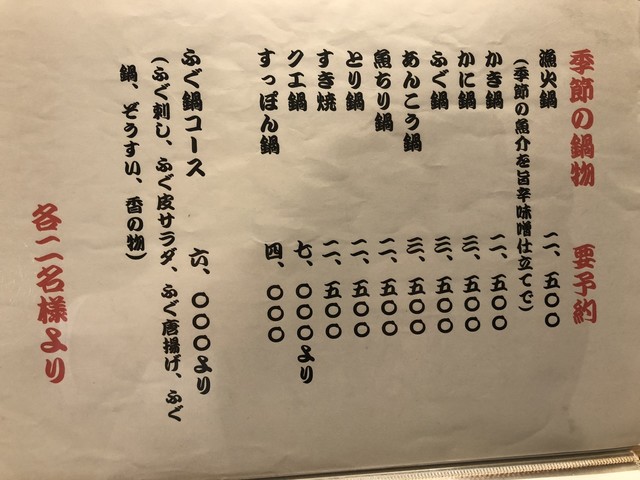 季節の鍋物 要予約
漁火鍋 二、五〇〇
(季節の魚介を旨辛味噌仕立てで)
かき鍋 二、五〇〇
かに鍋 三、五〇〇
ふぐ鍋 三、五〇〇
あんこう鍋 三、五〇〇
魚ちり鍋 二、五〇〇
とり鍋 二、五〇〇
すき焼 二、五〇〇
クエ鍋 七、〇〇〇より
すっぽん鍋 四、〇〇〇
ふぐ鍋コース 六、〇〇〇より
(ふぐ刺し、ふぐ皮サラダ、ふぐ唐揚げ、ふぐ
鍋、ぞうすい、香の物)
各二名様より